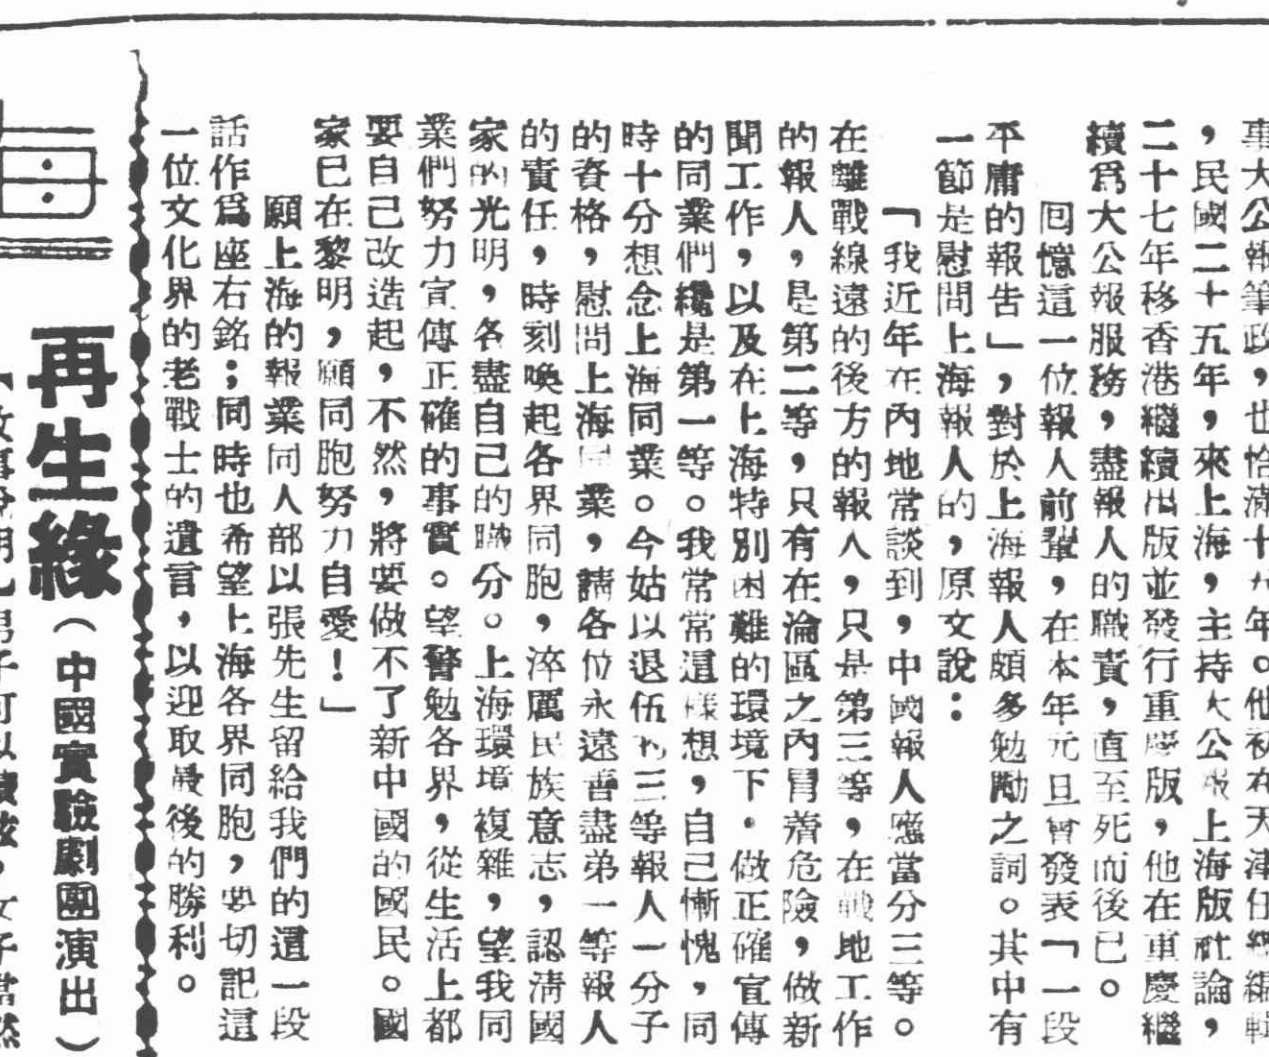 事大公報筆政，也恰滿十九年。他初在天津任總編輯
，民國二十五年，來上海，主持大公報上海版社論，
二十七年移香港繼續出版並發行重慶版，他在重慶繼
續爲大公報服務，盡報人的職責，直至死而後已。
回憶這一位報人前輩，在本年元旦曾發表「一段
平庸的報告」，對於上海報人頗多勉勵之詞。其中有
一節是慰問上海報人的，原文說：
「我近年在內地常談到，中國報人應當分三等。
在離戰線遠的後方的報人，只是第三等，在戰地工作
的報人，是第二等，只有在淪區之內冒着危險，做新
聞工作，以及在上海特別困難的環境下．做正確宣傳
的同業們纔是第一等。我常常這樣想，自己慚愧，同
時十分想念上海同業。今姑以退伍的三等報人一分子
的資格，慰問上海同業，請各位永遠善盡第一等報人
的責任，時刻喚起各界同胞，淬厲民族意志，認清國
家的光明，各盡自己的職分。上海環境複雜，望我同
業們努力宣傳正確的事實。望警勉各界，從生活上都
要自己改造起，不然，將要做不了新中國的國民。國
家已在黎明，願同胞努力自愛！」
願上海的報業同人部以張先生留給我們的這一段
話作爲座右銘；同時也希望上海各界同胞，要切記這
一位文化界的老戰士的遺言，以迎取最後的勝利。
再生緣（中國實驗劇團演出）